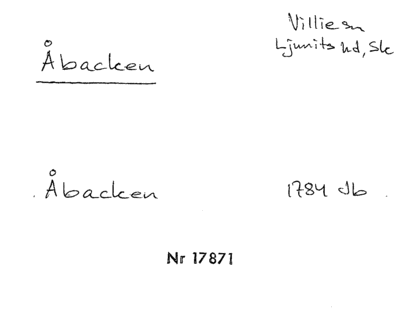 Åbacken
Villie sn
Ljunits hd, Sk
Åbacken
1784 Jb
Nr 17871